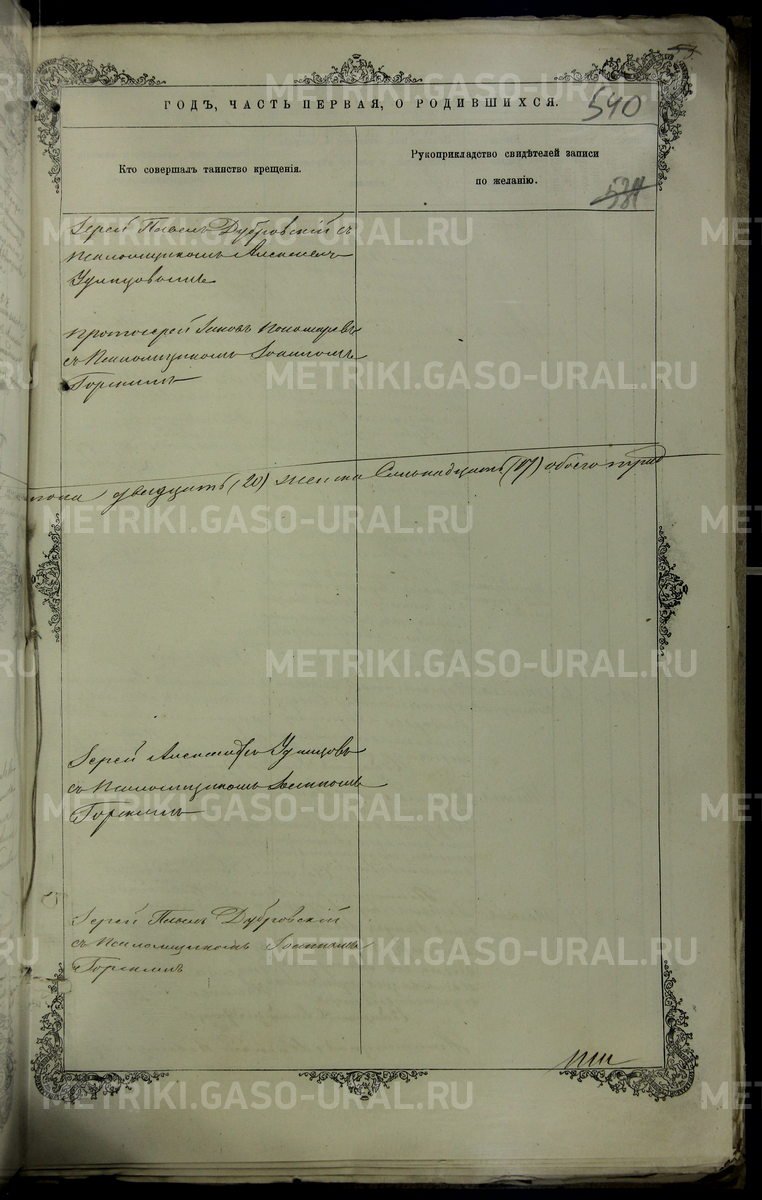 ГОДЪ, ЧАСТЬ ПЕРВАЯ, О РОДИВШИХСЯ.
540
Кто совершалъ таинство крещенія.
Рукоприкладство свидѣтелей записи
по желанію.
Іерей Павелъ Дубровскій съ
Псаломщикомъ Алексѣемъ
Удинцовымъ
Протоіерей Іаковъ Пономаревъ
съ Псаломщикомъ
Горскимъ
пола двадцать (20) женска Семнадцать (17) обоего трид
Іерей Александръ Удинцовъ
съ Псаломщикомъ
Горскимъ
Іерей Павелъ Дубровскій
съ Псаломщикомъ
Горскимъ
METRIKI.GASO-URAL.RU